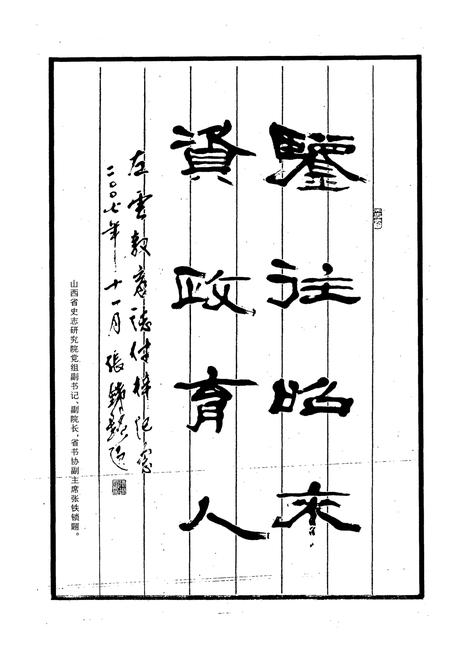 鑒往昭来
資政育人
左雲教育志付梓纪念
二〇〇七年十一月 張鐵鎖题
山西省史志研究院党组副书记、副院长，省书协副主席张铁锁题。